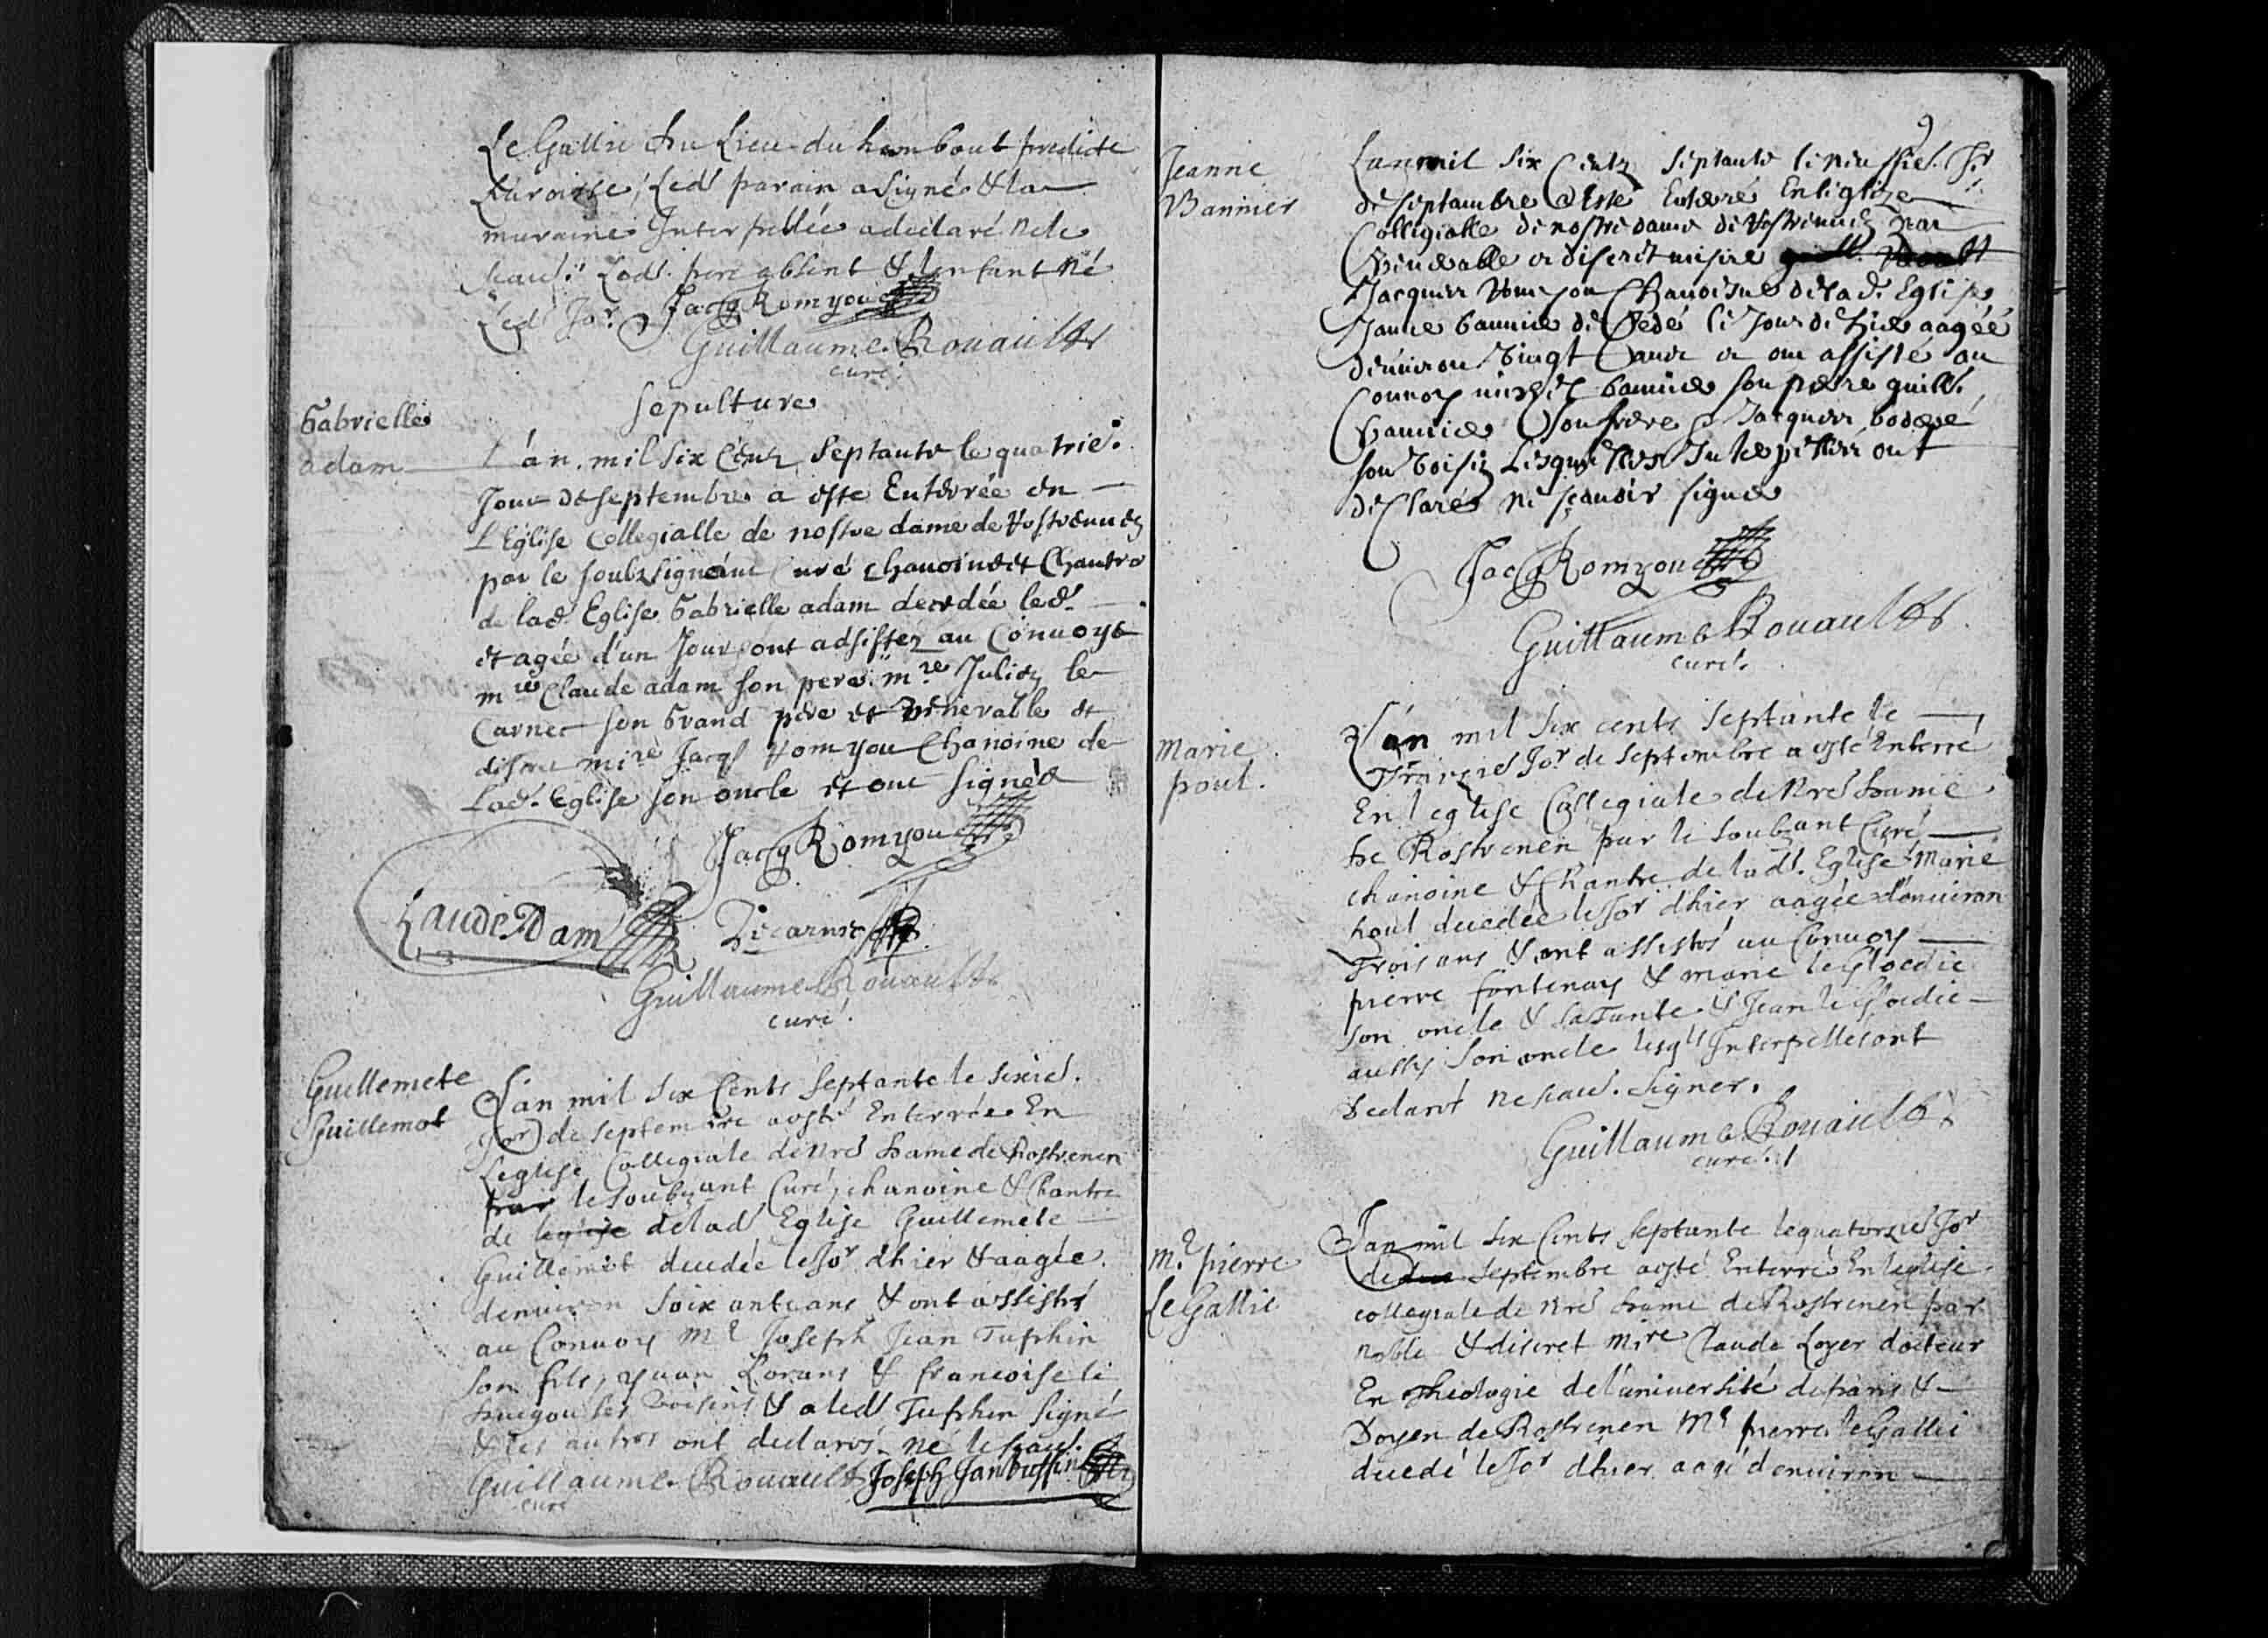 Le Gallic du Lieu du hambout predicte
Paroisse, Led. parain a signé & la
maraine Interpellée a déclaré ne le
scau. Lad. pere absent & lenfant né
Led. Jor. Jacq Romyou
Guillaume Rouault
curé
sepulture
Gabrielle
adam
L'án mil six Centz septante le quatrie.
Jour de septembre a esté Enterrée en
L'Eglise Collegialle de nostre dame de Rostrenen
par le soubsignant Curé chanoine et Chantre
de lad. Eglise Gabrielle adam decedée led.
et agée d'un Jour ont adsistez au Convoye
mre Claude adam son pere mre Julien le
Carnec son Grand pere et venerable et
discret mire Jacq Romyou Chanoine de
Lad. Eglise son oncle et ont signés
Jacq Romyou
Claude Adam Lecarnec
Guillaume Rouault
curé.
Guillemete
Guillemot
L'an mil six Cents septante le sixie.
Jor de septembre a esté Enterrée En
Leglise Collegiale de Nre Dame de Rostrenen
par le soubzant Curé, chanoine & Chantre
de leglise de lad Eglise Guillemete
Guillemot decedée le Jor dhier & aagée
denuiron soixante ans & ont assistés
au Convoy Mr Joseph Jean Tuphin
son fils, yuan Lorans & francoise le
 ses voisins & a led Tuphin signé
& les autres ont declarés ne le scau.
Guillaume Rouault Joseph Jan
curé
9
Jeanne
Bannier
Lan mil six Centz septante le neuffie. Jr
de septambre a Esté Enterré En leglize
Collegialle de nostre dame de Rostrenen par
Venerable et discret misire guill. Rouault
Jacques Romyou Chanoisne de lad. Eglise
Janne bannier décédé le Jour de hier aagée
denuiron vingt Cans et ont assisté au
Connoy michel bannier son pere guill.
bannier son frere Jacques
son voisin Lesquelles Interpelles ont
declarés ne scauoir signer
Jacq Romyou
Guillaume Rouault
curé.
Marie
poul.
L'an mil six cents septante le
Jor de septembre a esté Enterré
En leglise Collegiale de Nre Dame
De Rostrenen par le soubzant Curé
chanoine & Chantre de lad. Eglise Marie
poul decedée le Jor dhier aagée denuiron
Trois ans & ont assistés au Convoy
pierre fontenay & marie le Gloedic
son oncle & sa Tante & Jean le Gloedic
aussy son oncle lesqls Interpelles ont
declaré ne scau. signer.
Guillaume Rouault
curé.
Mr. pierre
Le Gallic
Lan mil six Cents septante le quatorzie Jor
de septembre a esté Enterré En leglise
collegiale de Nre Dame de Rostrenen par
noble & discret Mire Claude Loyer docteur
En Theologie de l'université de paris &
Doyen de Rostrenen Mr pierre le Gallic
decedé le Jor dhier aagé denuiron